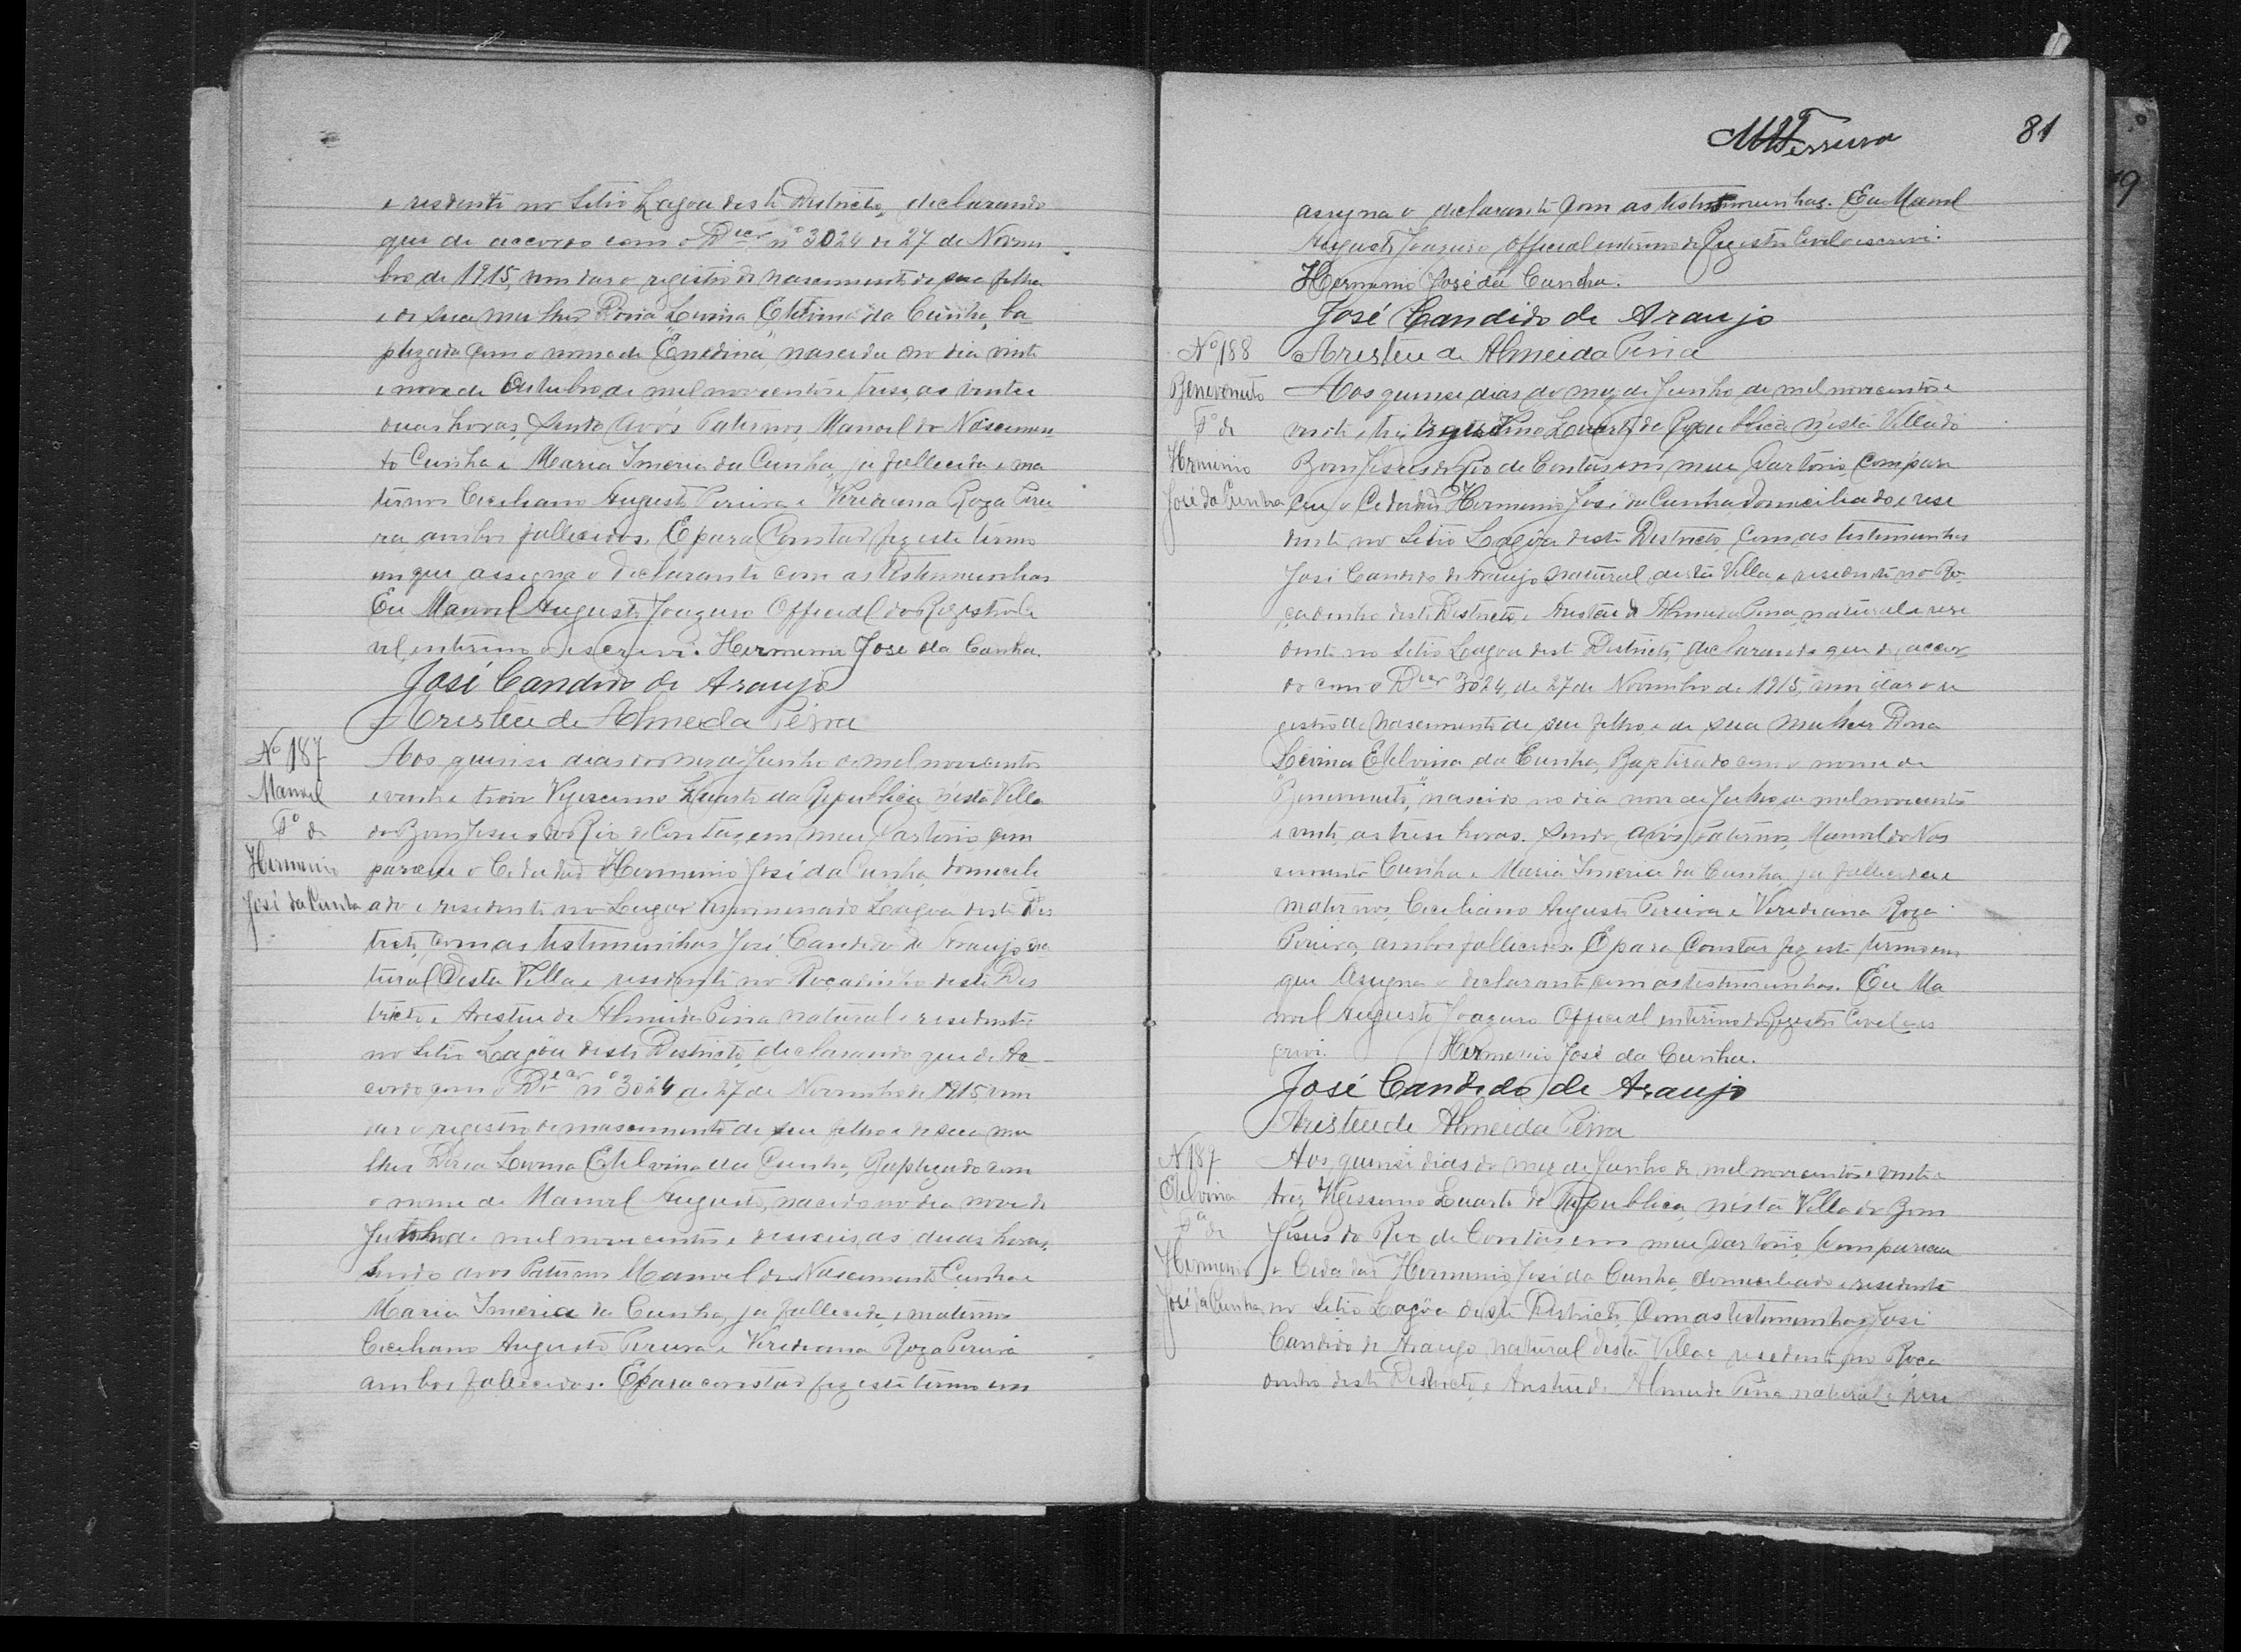 e residente no Sitio Lagôa deste Districto, declarando
que de accordo com o Decr nº 3024 de 27 de Novem
bro de 1915, vem dar o registro de nascimento de sua filha
e de sua mulher Dona Levina Etelvina da Cunha, ba
ptizada com o nome de "Enedina", nascida no dia vinte
e nove de Outubro de mil novecentos e trese, as vinte e
duas horas, sendo Avós Paternos, Manoel do Nascimen
to Cunha e Maria Imeria da Cunha, ja fallecida e ma
ternos Ceciliano Augusto Pereira e Veridiana Roza Perei
ra, ambos fallecidos. E para Constar fez este termo
em que assigna o declarante com as testemunhas
Eu Manoel Augusto Joazeiro Official do Registro Ci
vil interino o escrevi. Herminio José da Cunha.
José Candido de Araujo
Aristeu de Almeida Peixa
Nº 187
Manoel
Fº de
Herminio
José da Cunha
Aos quinse dias do mez de Junho de mil novecentos
e vinte e trez Vigessimo Quarto da Republica, nesta Villa
do Bom Jesus do Rio de Contas, em meu Cartorio com
pareceu o Cidadão Herminio José da Cunha, domicili
ado e residente no Lugar denominado Lagôa deste Dis
tricto, com as testemunhas José Candido de Araujo na
tural desta Villa e residente no Roçadinho deste Dis
tricto e Aristeu de Almeida natural e residente
no Sitio Lagôa deste Districto, declarando que de Ac
cordo com o Decr nº 3024 de 27 de Novembro de 1915, vem
dar o registro de nascimento de seu filho e de sua mu
lher Dona Levina Etelvina da Cunha, Baptizado com
o nome de Manoel Augusto, nacido no dia nove de
Julho de mil novecentos e deseseis, as duas horas,
Sendo avos Paternos Manoel do Nascimento Cunha e
Maria Imeria da Cunha, ja fallecida, e maternos
Ceciliano Augusto Pereira e Veridiana Roza Pereira
ambos fallecidos. E para constar fez este termo em
81
assigna o declarante com as testemunhas. Eu Manoel
Augusto Joazeiro Official interino do Registro Civil o escrevi.
Herminio José da Cunha.
José Candido de Araujo
Aristeu de Almeida
Nº 188
Benevenuto
Fº de
Herminio
José da Cunha
Aos quinse dias do mez de Junho de mil novecentos e
vinte e trez Quarto da Republica nesta Villa do
Bom Jesus do Rio de Contas em meu Cartorio, compare
ceu o Cidadão Herminio José da Cunha domiciliado e resi
dente no Sitio Lagôa deste Districto, com as testemunhas
José Candido de Araujo, natural desta Villa e residente no Ro
çadinho deste Districto, e Aristeu de Almeida natural e resi
dente no Sitio Lagoa deste Districto, declarando que de accor
do com o Decr 3024, de 27 de Novembro de 1915, vem dar o re
gistro de nascimento de seu filho e de sua mulher Dona
Levina Etelvina da Cunha, Baptisado com o nome de
"Benevenuto," nascido no dia nove de Julho de mil novecentos
e vinte, as trese horas. Sendo, avós Paternos, Manoel do Nas
cimento Cunha e Maria Imeria da Cunha, ja fallecida e
maternos, Ceciliano Augusto Pereira e Veridiana Roza
Pereira, ambos fallecidos. E para Constar fez este termo em
que Assigna o declarante com as testemunhas. Eu Ma
noel Augusto Joazeiro Official interino do Registro Civil o es
crevi. Herminio José da Cunha.
José Candido de Araujo
Aristeu de Almeida
N 187
Etelvina
Fª de
Herminio
José da Cunha
Aos quinse dias do mez de Junho de mil novecentos e vinte e
trez, Vigessimo Quarto da Republica, nesta Villa do Bom
Jesus do Rio de Contas em meu Cartorio, Compareceu
o Cidadão Herminio José da Cunha, domiciliado e residente
no Sitio Lagôa deste Districto, Com as testemunhas, José
Candido de Araujo, natural desta Villa e residente no Roça
dinho deste Districto, e Aristeu de Almeida natural e resi